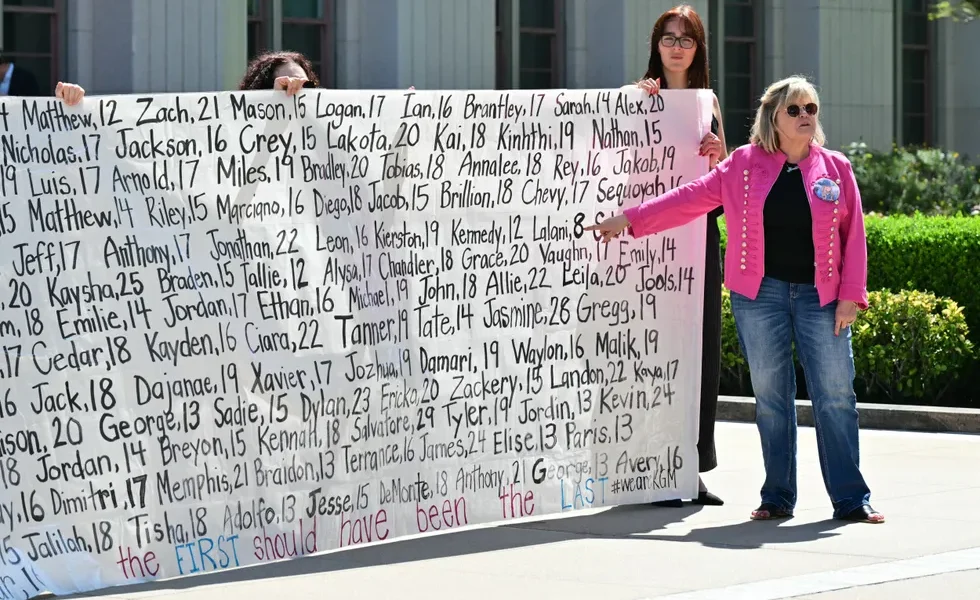 4 Matthew, 12 Zach, 21 Mason, 15 Logan, 17 Ian, 16 Brantley, 17 Sarah, 14 Alex,
Nicholas, 17 Jackson, 16 Crey, 15 Lakota, 20 Kai, 18 Kinhthi, 19 Nathan, 15
19 Luis, 17 Arnold, 17 Miles, 19 Bradley, 20 Tobias, 18 Annalee, 18 Rey, 16 Jakob, 19
15 Matthew, 14 Riley, 15 Marciano, 16 Diego, 18 Jacob, 15 Brillion, 18 Chevy, 17 Sequoyah, 16
Jeff, 17 Anthony, 17 Jonathan, 22 Leon, 16 Kierston, 19 Kennedy, 12 Lalani, 8
20 Kaysha, 25 Braden, 15 Tallie, 12 Alysa, 17 Chandler, 18 Grace, 20 Vaughn, 17 Emily, 14
18 Emilie, 14 Jordan, 17 Ethan, 16 Michael, 19 John, 18 Allie, 22 Leija, 20 Jools, 14
17 Cedar, 18 Kayden, 16 Ciara, 22 Tanner, 19 Tate, 14 Jasmine, 26 Gregg, 19
16 Jack, 18 Dajanae, 19 Xavier, 17 Jozhua, 19 Damari, 19 Waylon, 16 Malik, 19
20 George, 13 Sadie, 15 Dylan, 23 Ericka, 20 Zackery, 15 Landon, 22 Kaya, 17
18 Jordan, 14 Breyon, 15 Kennah, 18 Salvatore, 29 Tyler, 19 Jordin, 13 Kevin, 24
16 Dimitri, 17 Memphis, 21 Braidon, 13 Terrance, 16 James, 24 Elise, 13 Paris, 13
15 Jalilah, 18 Tisha, 18 Adolfo, 13 Jesse, 15 DeMonte, 18 Anthony, 21 George, 13 Avery, 16
the FIRST should have been the LAST #weareKGM